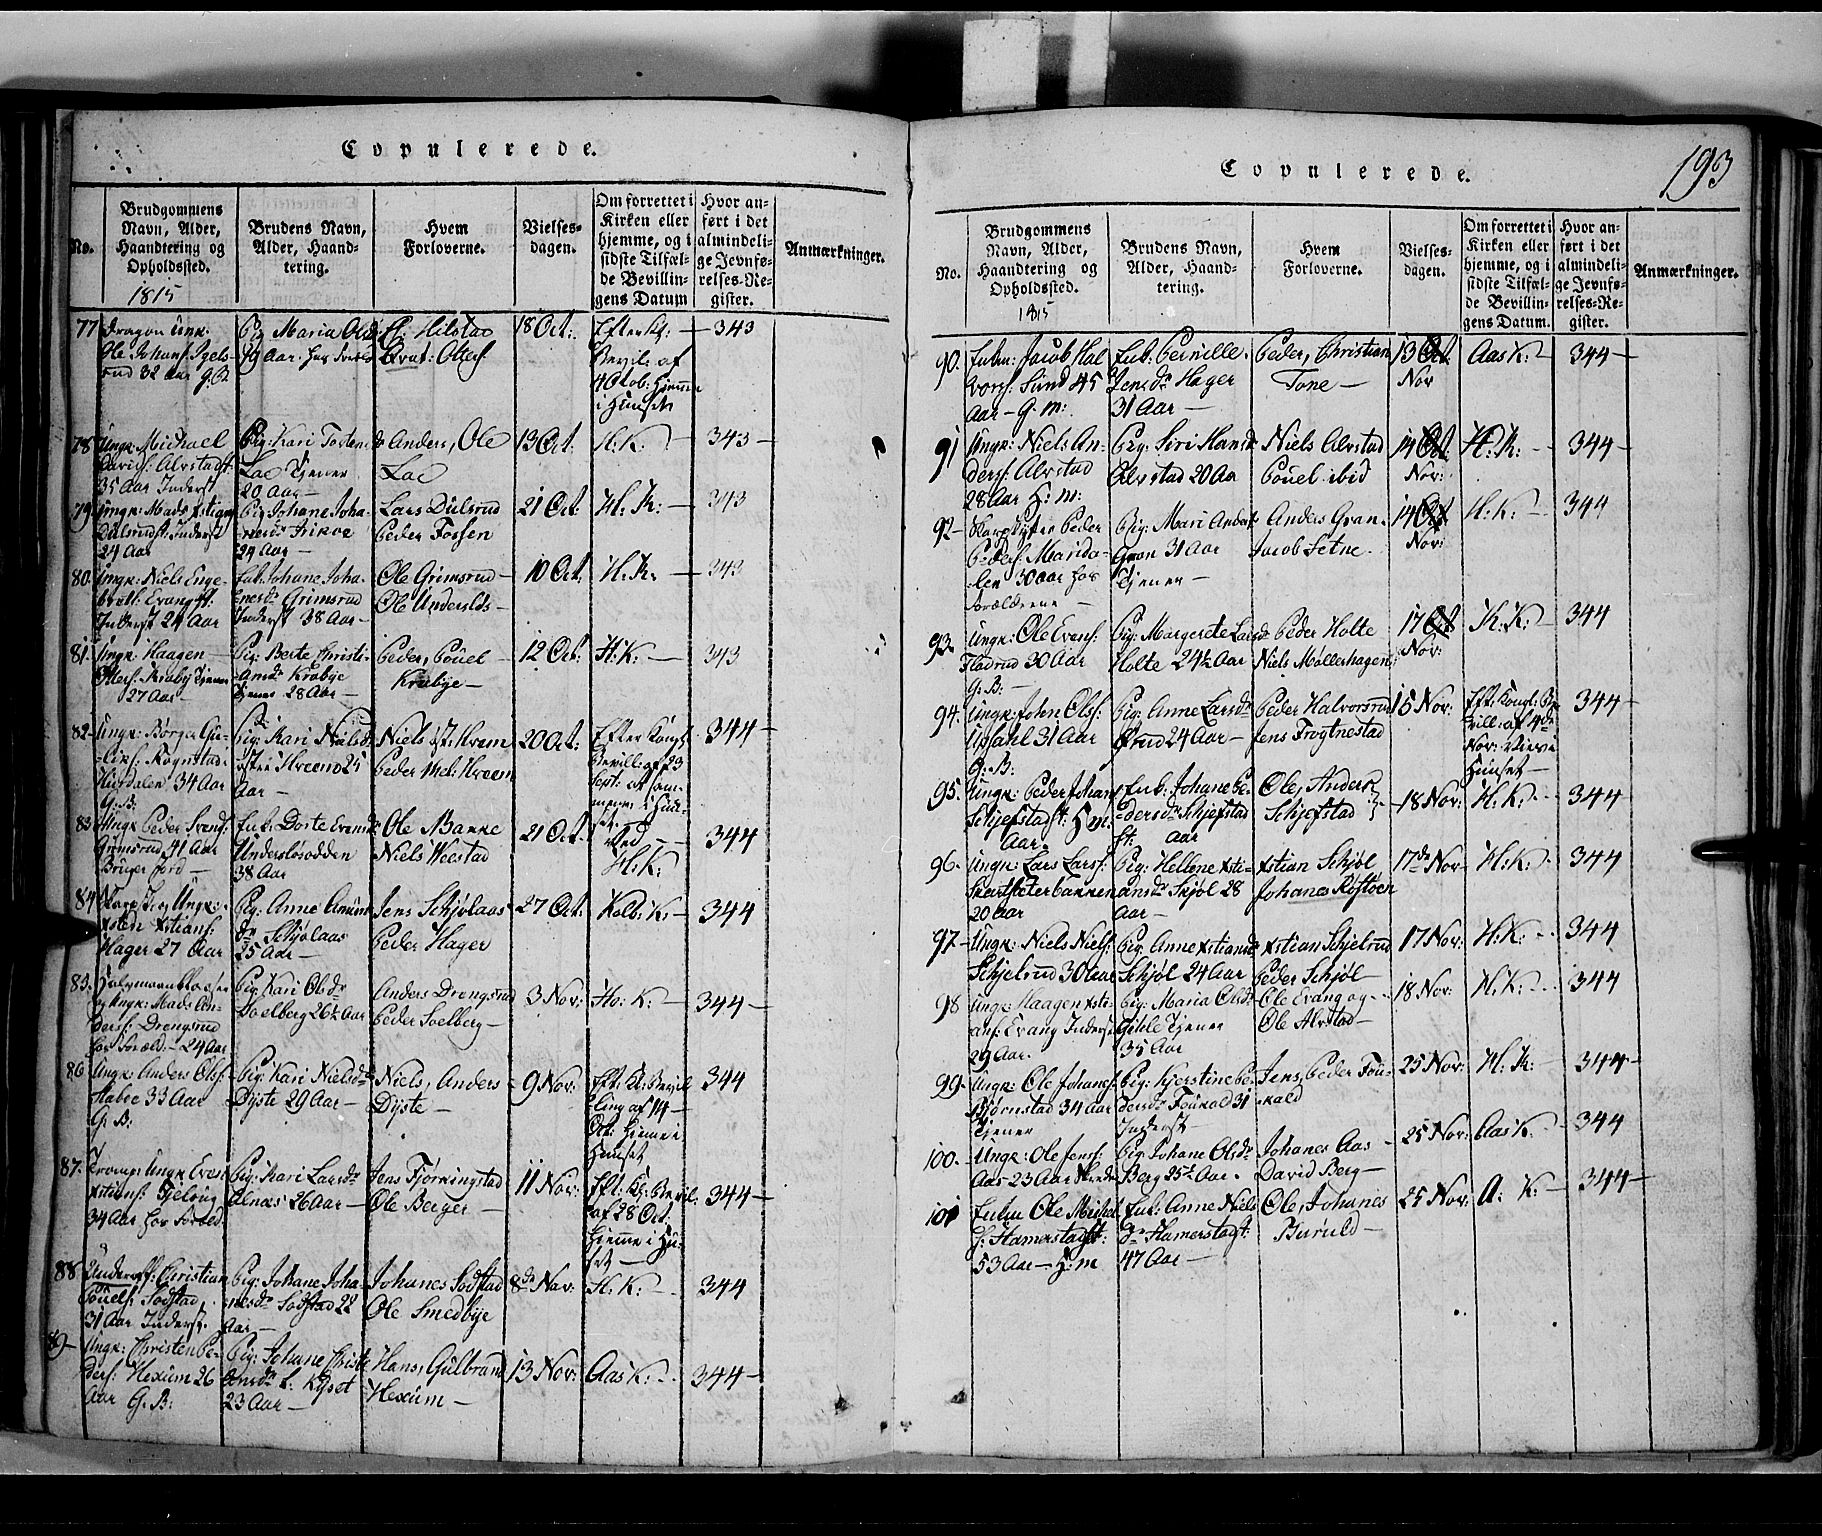 Copulerede.
No.
Brudgommens
Navn, Alder,
Haandtering og
Opholdssted.
1815
Brudens Navn,
Alder, Haand-
tering.
Hvem
Forloverne.
Vielses-
dagen.
Om forrettet i
Kirken eller
hjemme, og i
sidste Tilfæl-
de Bevillin-
gens Datum
Hvor an-
ført i det
almindeli-
ge Jevnfø-
relses-Re-
gister.
Anmærkninger.
77
Dragon Ungk:
Ole Johans:
rud 32 Aar G.B.
Pig: Maria Olsd:
29 Aar.
18 Oct:
Efter Kl:
Bevil: af
4 Octob: hiemme
i Huuset
343
78
Ungk: Michael
Davids: Alvstad
35 Aar Inderst
Pig: Kari Torsten
Lae Tjener
20 Aar
Anders, Ole
Lae
13 Oct.
H: K:
343
79
Ungk: Mads Xstian
Dulsrud Inderst
24 Aar
Pig: Johane Joha-
nesdr
24 Aar
Lars Dulsrud
Peder Fossen
21 Oct:
H: K:
343
80
Ungk: Niels Enge-
bret: Evang
Inderst 24 Aar
Enk: Johane Joha-
nesdr Grimsrud
Inderst 38 Aar
Ole Grimsrud
Ole
10 Oct.
H: K:
343
81
Ungk: Haagen
Krabye Tjener
27 Aar
Pig: Berte Christi-
ansdr Krabye
Tjener 28 Aar
Peder, Pouel
Krabye
12 Oct:
H: K:
343
82
Ungk: Børger
Rognstad
Hurdalen 34 Aar
G: B:
Pig: Kari Nielsd
Hveem 25
Aar
Niels Hveem
Peder Hveem
20 Oct:
Efter Kongl
Bevilling af 23
Sept:
344
83
Ungk Peder Svend:
Grimsrud 41 Aar
Bruger Jord
Enk: Dorte Evensd
38 Aar
Ole Bakke
Niels Weestad
21 Oct:
Ved
H: K:
344
84
Xstians:
Hager 27 Aar
Pig: Anne Amund
dr Schjølaas
25 Aar
Jens Schjølaas
Peder Hager
27 Oct:
Kolb: K:
344
85
og Ungk: Mads An-
ders: Drengsrud
hos Foræld. 24 Aar
Pig: Kari Olsdr
Soelberg 26½ Aar
Anders Drengsrud
Peder Soelberg
3 Nov:
Ho: K:
344
86
Ungk: Anders Ols:
Habee 33 Aar
G: B:
Pig: Kari Nielsdr
Dyste 29 Aar
Niels, Anders
Dyste
9 Nov:
Eft: Kl: Bevil
ling af 14
Oct: hjemme i
Huuset
344
87.
Tromp: Ungk Even
Xstians:
34 Aar hos Foræld.
Pig: Kari Larsdr
Alnæs 26 Aar
Jens Fjørkingstad
Ole Berger
11 Nov:
Eft: Kl: Bevil:
af 28 Oct:
hjemme i Hu-
set
344
88
Underoff: Christian
Pouels: Sodstad
31 Aar Inderst
Pig: Johane Joha-
nesdr Sodstad 22
Aar
Johanes Sodstad
Ole Smedbye
8de Nov:
H: K:
344
89
Ungk: Christen Pe-
ders: Hexum 26
Aar G. B:
Pig: Johane Christi
ansdr
23 Aar
Hans, Gulbrand
Hexum
13 Nov:
Aas K:
344
193
Copulerede.
No.
Brudgommens
Navn, Alder,
Haandtering og
Opholdssted.
1815
Brudens Navn,
Alder, Haand-
tering.
Hvem
Forloverne.
Vielses-
dagen.
Om forrettet i
Kirken eller
hjemme, og i
sidste Tilfæl-
de Bevillin-
gens Datum.
Hvor an-
ført i det
almindeli-
ge Jevnfø-
relses-Re-
gister.
Anmærkninger.
90.
Enkm: Jacob Hal
vors: Sund 45
Aar G. m:
Enk: Pernille
Jensdr Hager
31 Aar
Peder, Christian
Tone
13 Oct.
Nov
Aas K:
344
91
Ungk: Niels An-
ders: Alvstad
28 Aar H: m:
Pig: Siri Hansd
Alvstad 20 Aa
Niels Alvstad
Pouel ibid
14 Oct:
Nov:
H: K:
344
92
Peder
Peders: Marida-
len 30 Aar hos
Forælderne
Pig: Mari Andersd
Gran 31 Aar
Tjener
Anders Gran
Jacob Setne
14 Oct
Nov:
H: K:
344
93.
Ungk: Ole Evens:
Fladrud 30 Aar
G: B:
Pig: Margrete Larsd
Holte 24½ Aar
Peder Holte
Niels Møllerhagen
17 Oct
Nov:
K: K:
344
94.
Ungk: John Ols:
Upsahl 31 Aar
G: B:
Pig: Anne Larsdr
Ørud 24 Aar
Peder Halvorsrud
Jens Frogtnestad
15 Nov:
Eft: Kongl: Be
vill: af 4de
Nov: Viet i
Huuset
344
95.
Ungk: Peder Johans
Schjefstad H m:
Aar.
Enk: Johane Pe-
dersdr Schjefstad
Aar
Ole, Anders
Schjefstad
18 Nov:
H: K:
344
96.
Ungk: Lars Lars:
20 Aar
Pig: Hellene Xsti-
ansdr Skjøl 28
Aar
Xstian Schjøl
Johanes Røstøen
17de Nov
H: K:
344
97
Ungk: Niels Niels:
Schjelrud 30 Aar
Pig: Anne Xstiansd
Schjøl 24 Aar
Xstian Schjelrud
Peder Schjøl
17 Nov:
H: K:
344
98
Ungk: Haagen Xsti-
ans: Evang Inderst
29 Aar.
Pig: Maria Olsdr
Gihle Tjener
35 Aar
Ole Evang og
Ole Alvstad
18 Nov:
H: K:
344
99
Ungk: Ole Johanes:
Bjørnstad 34 Aar
Tjener
Pig: Kjerstine Pe-
dersdr Foukald 31
Inderst
Jens, Peder Fou-
kald
25 Nov:
H: K:
344
100.
Ungk: Ole Jens:
Aas 23 Aar
Pig: Johane Olsdr
Berg 25½ Aar.
Johanes Aas
David Berg
25 Nov:
Aas K:
344
101
Enkm Ole Michel
s: Hamerstad
53 Aar H: m
Enk: Anne Niels
dr Hamerstad
47 Aar
Ole, Johanes
Buruld
25 Nov:
A: K:
344